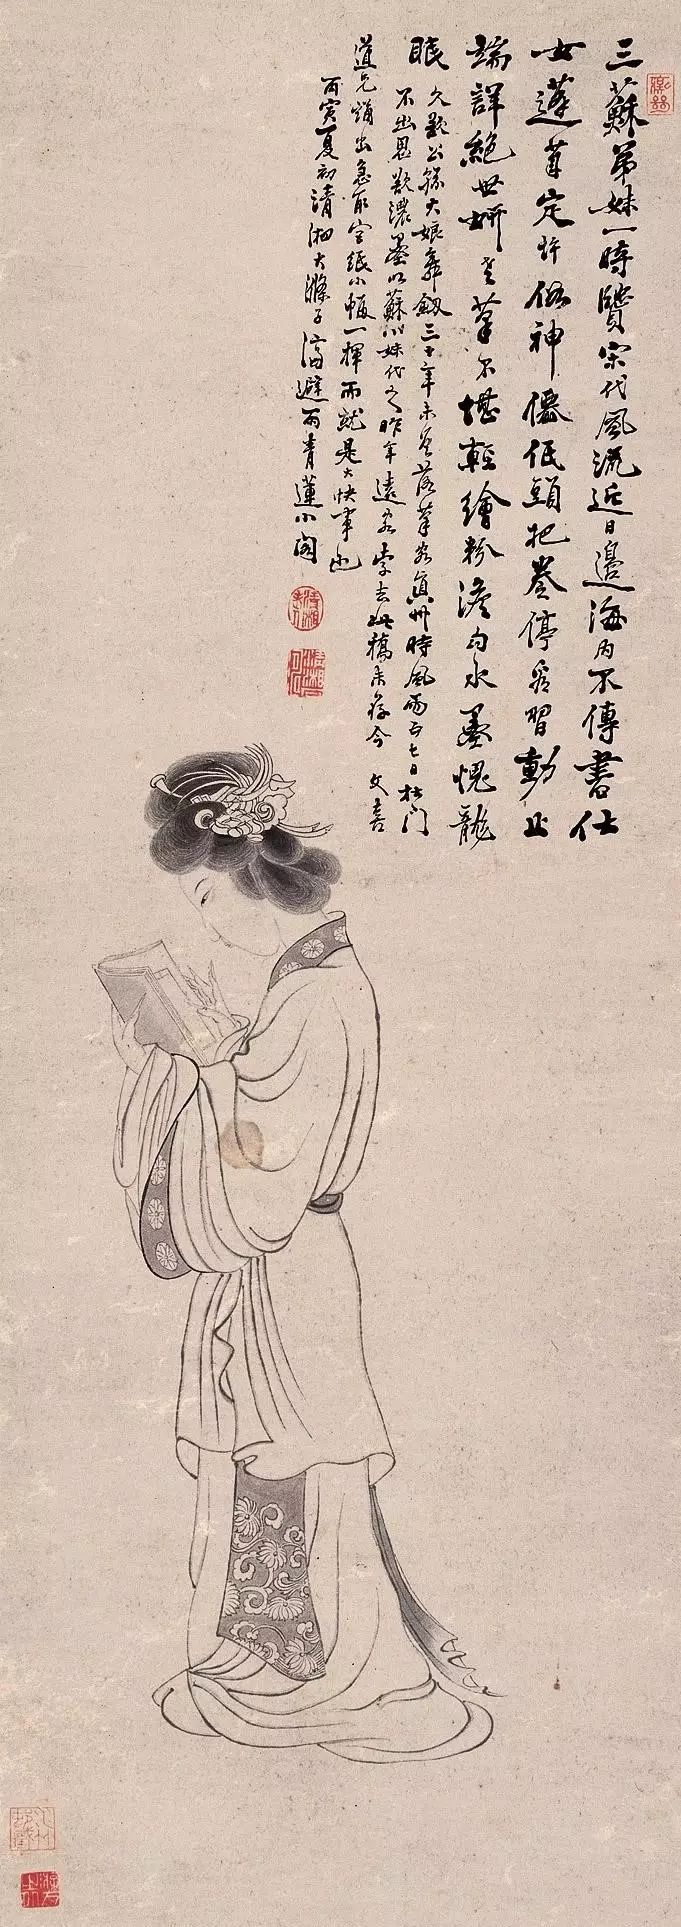 三蘇弟妹一時賢宋代風流近日邊海內不傳書仕
女蓬萊定許傍神僊低頭把卷停看習動止
端詳絕世妍老筆不堪輕繪粉澹勻水墨愧龍
眠 久欲公孫大娘舞劍三十年未曾落筆客真州時風雨正七日杜門
不出思欲濃墨以蘇小妹代之昨年遠客索去此稿未存今 文喜
道兄燭出急取宣紙小幅一揮而就是大快事也
丙寅夏初清湘大滌子濟避雨青蓮小閣